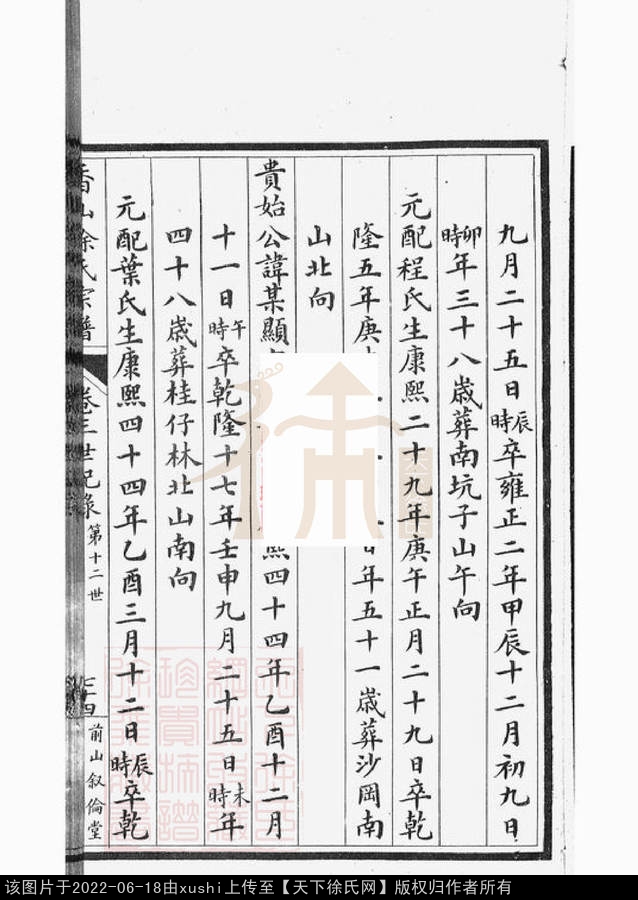 九月二十五日辰時卒雍正二年甲辰十二月初九日
卯時年三十八歲葬南坑子山午向
元配程氏生康熙二十九年庚午正月二十九日卒乾
隆五年庚 年五十一歲葬沙岡南
山北向
貴始公諱某顯 熙四十四年乙酉十二月
十一日午時卒乾隆十七年壬申九月二十五日未時年
四十八歲葬桂仔林北山南向
元配葉氏生康熙四十四年乙酉三月十二日辰時卒乾
香山徐氏宗譜 卷三世紀錄 第十二世 七十四 前山叙倫堂
徐
该图片于2022-06-18由xushi上传至【天下徐氏网】版权归作者所有